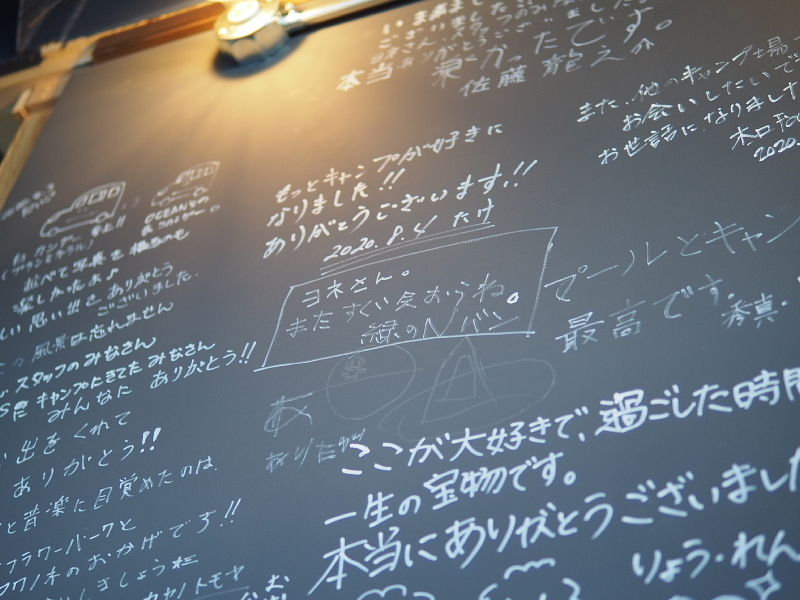 ございました
本当 良かったです。
佐藤 龍之介
また、他のキャンプ場で
お会いしたいで
お世話になりました
2020.
もっとキャンプが好きに
なりました!!
ありがとうございます!!
2020.8.4 たけ
ヨネさん。
またすぐ会おうね。
緑のNバン
プールとキャン
最高です。
秀真・
OCEANSの
並べて写真を
楽しかったよ♪
しい思い出をありがとう
ございました。
この風景は忘れません
スタッフのみなさん
キャンプにきてたみなさん
みんなに ありがとう!!
い出をくれて
ありがとう!!
と音楽に目覚めたのは、
フラワーパークと
のおかげです!!
しましょうね
カヤノトモヤ
あ
ありた
ここが大好きで、過ごした時間
一生の宝物です。
本当にありがとうございました
りょう・れん